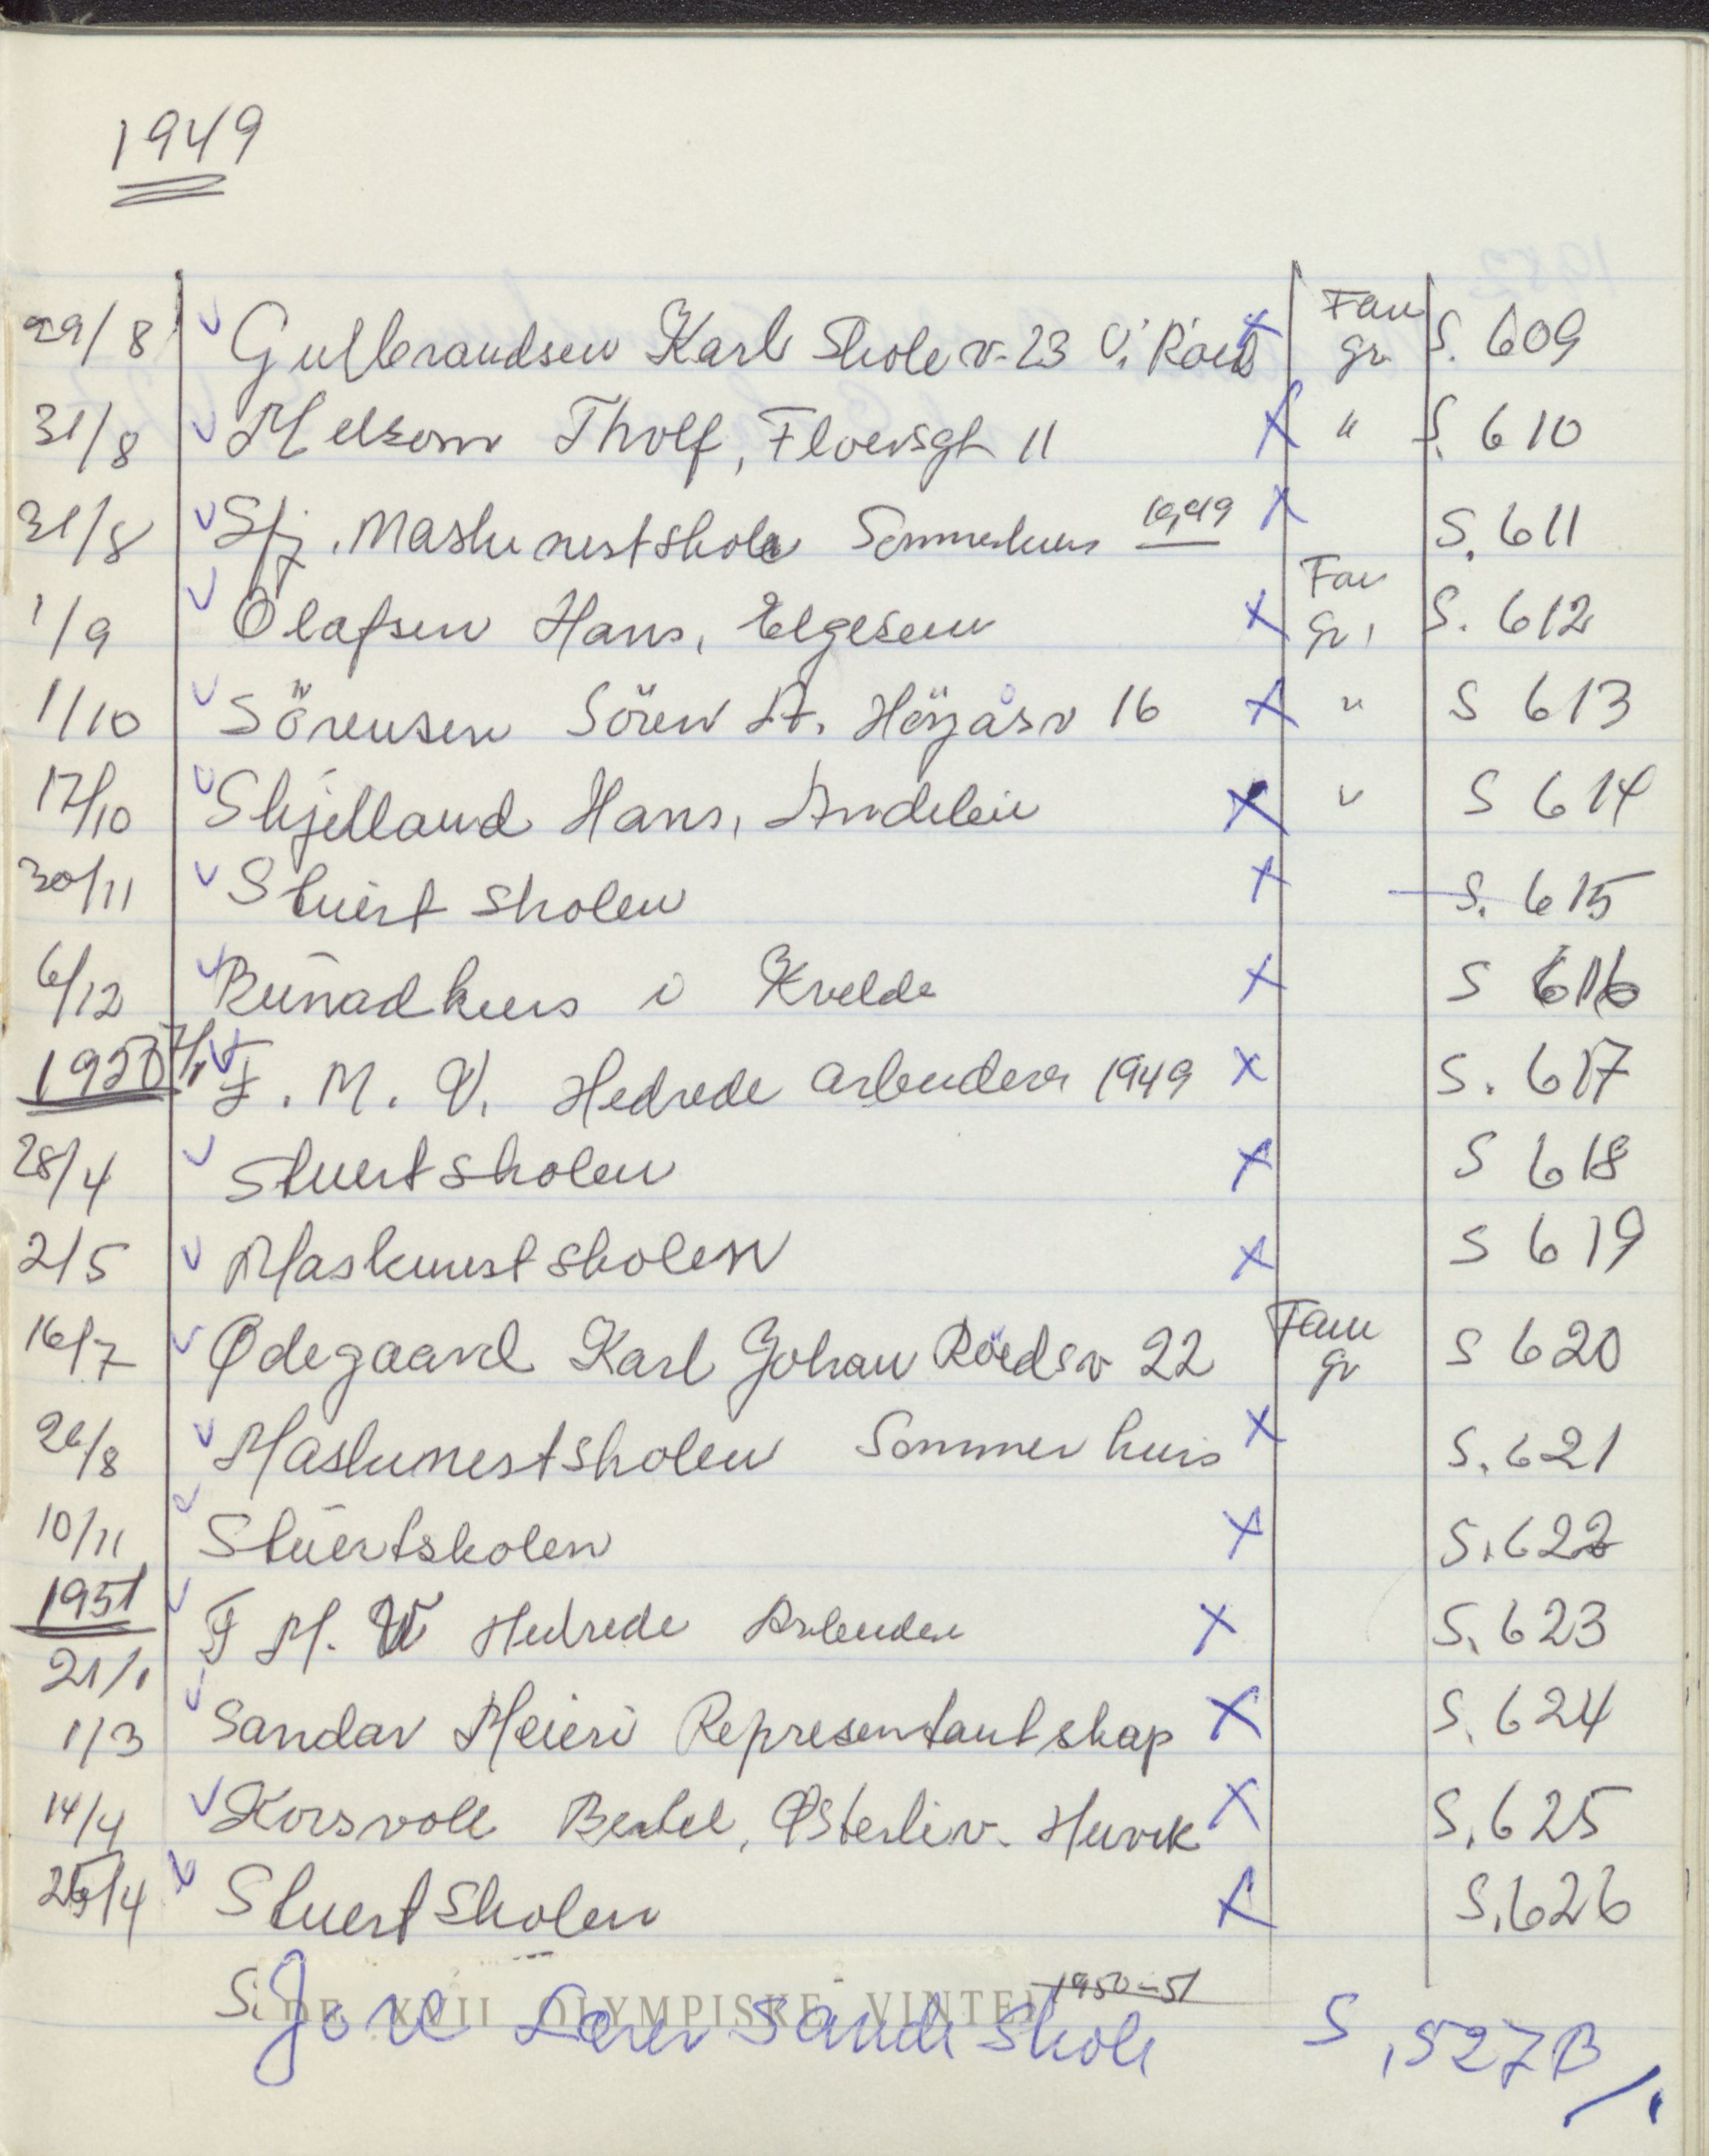 1949
29/8 Gulbrandsen Karl Skolev. 23 V. Råen Fam gr S. 609
31/8 Melsom Tholf, Floersgt 11 " S. 610
31/8 Sfj. Maskinistskole Sommerkurs 1949 S. 611
1/9 Olafsen Hans, Elgesem Fam Gr, S. 612
1/10 Sörensen Sören A. Höyåsv 16 " S 613
17/10 Skjelland Hans, " S 614
30/11 Stuert skolen S. 615
6/12 Bunadkurs i Kvelde S 616
1950 7/1 F. M. V. Hedrede arbeidere 1949 S. 617
28/4 Stuertskolen S 618
2/5 Maskinistskolen S 619
16/7 Ødegaard Karl Johan Röedsv 22 Fam gr S 620
26/8 Maskinistskolen Sommerkurs S. 621
10/11 Stuertskolen S. 622
1951
21/1 F M. V Hedrede Arbeidere S. 623
1/3 Sandar Meieri Representantskap S. 624
14/4 Korsvoll Bertel, Østerliv. S. 625
25/4 Stuertskolen S. 626
DE XVII OLYMPISKE VINTER
1950-51
S. Lærer Sande skole S. 527B